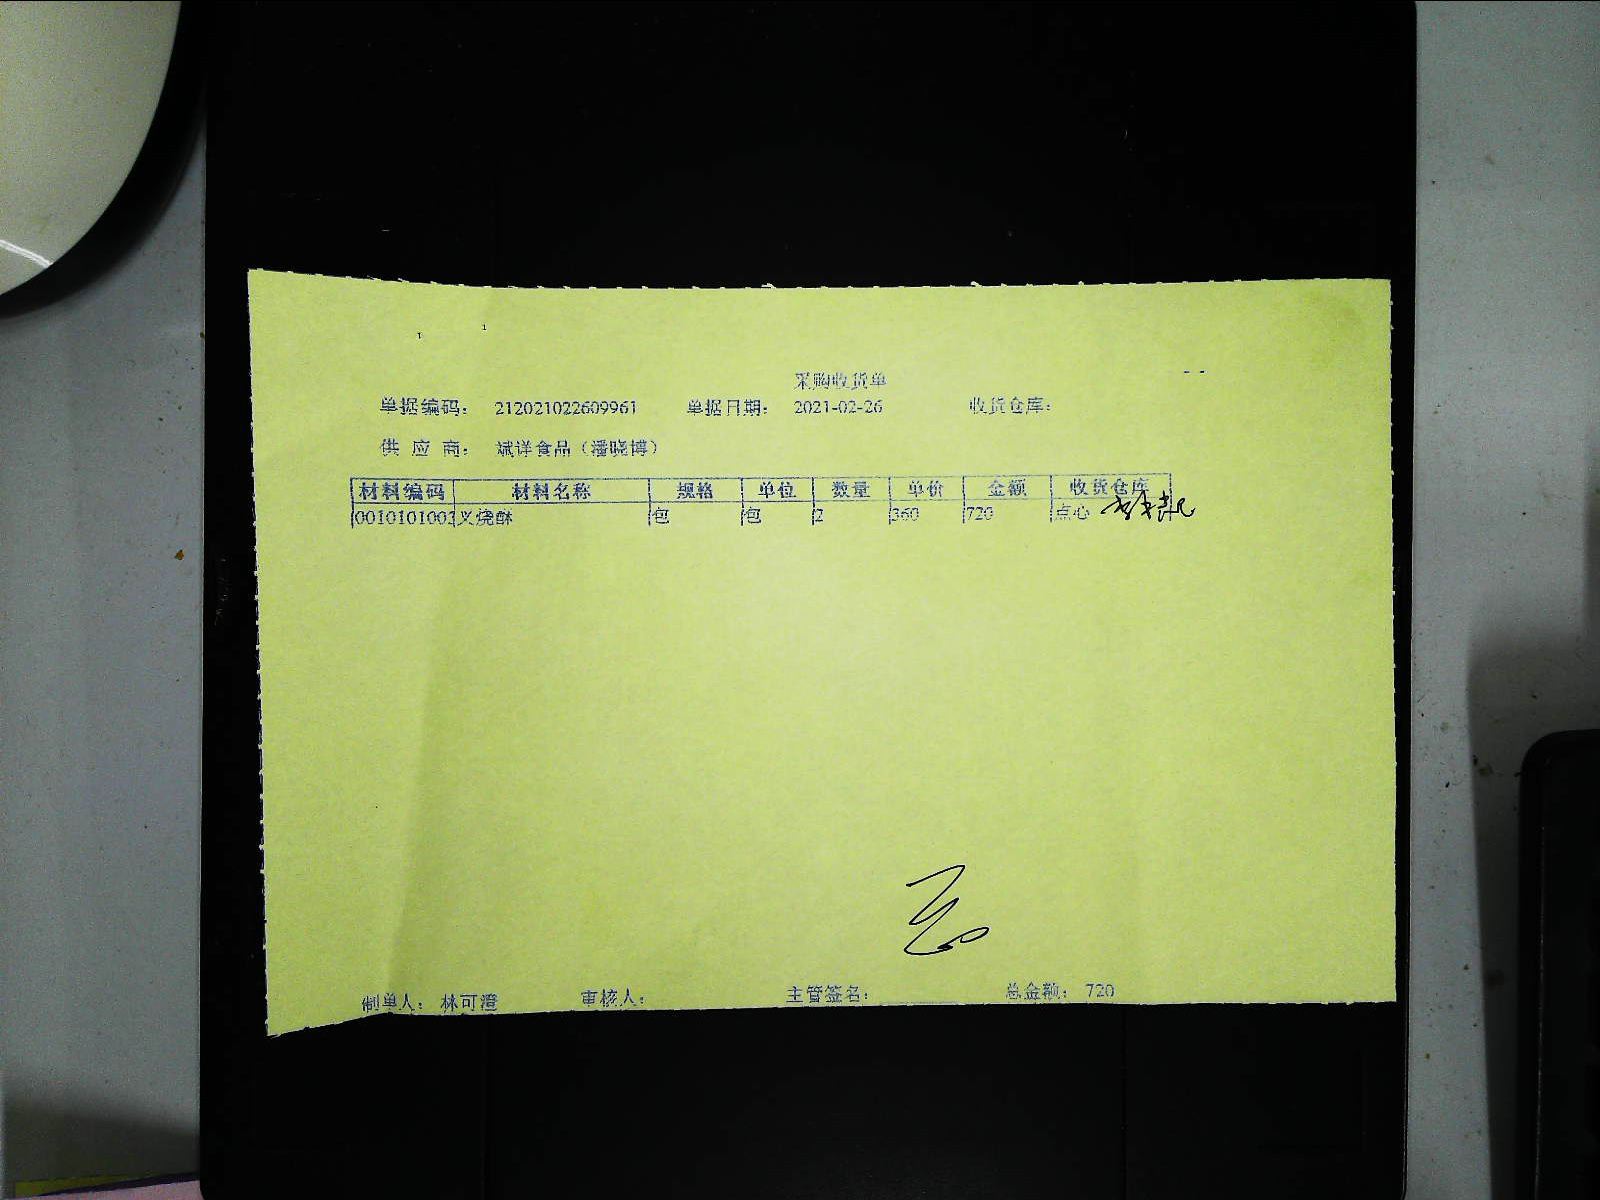 采购收货单
单据编码： 212021022609961 单据日期： 2021-02-26 收货仓库：
供 应 商： 斌详食品（潘晓博）
材料编码 材料名称 规格 单位 数量 单价 金额 收货仓库
0010101003 叉烧酥 包 包 2 360 720 点心
制单人： 林可澄 审核人： 主管签名： 总金额： 720